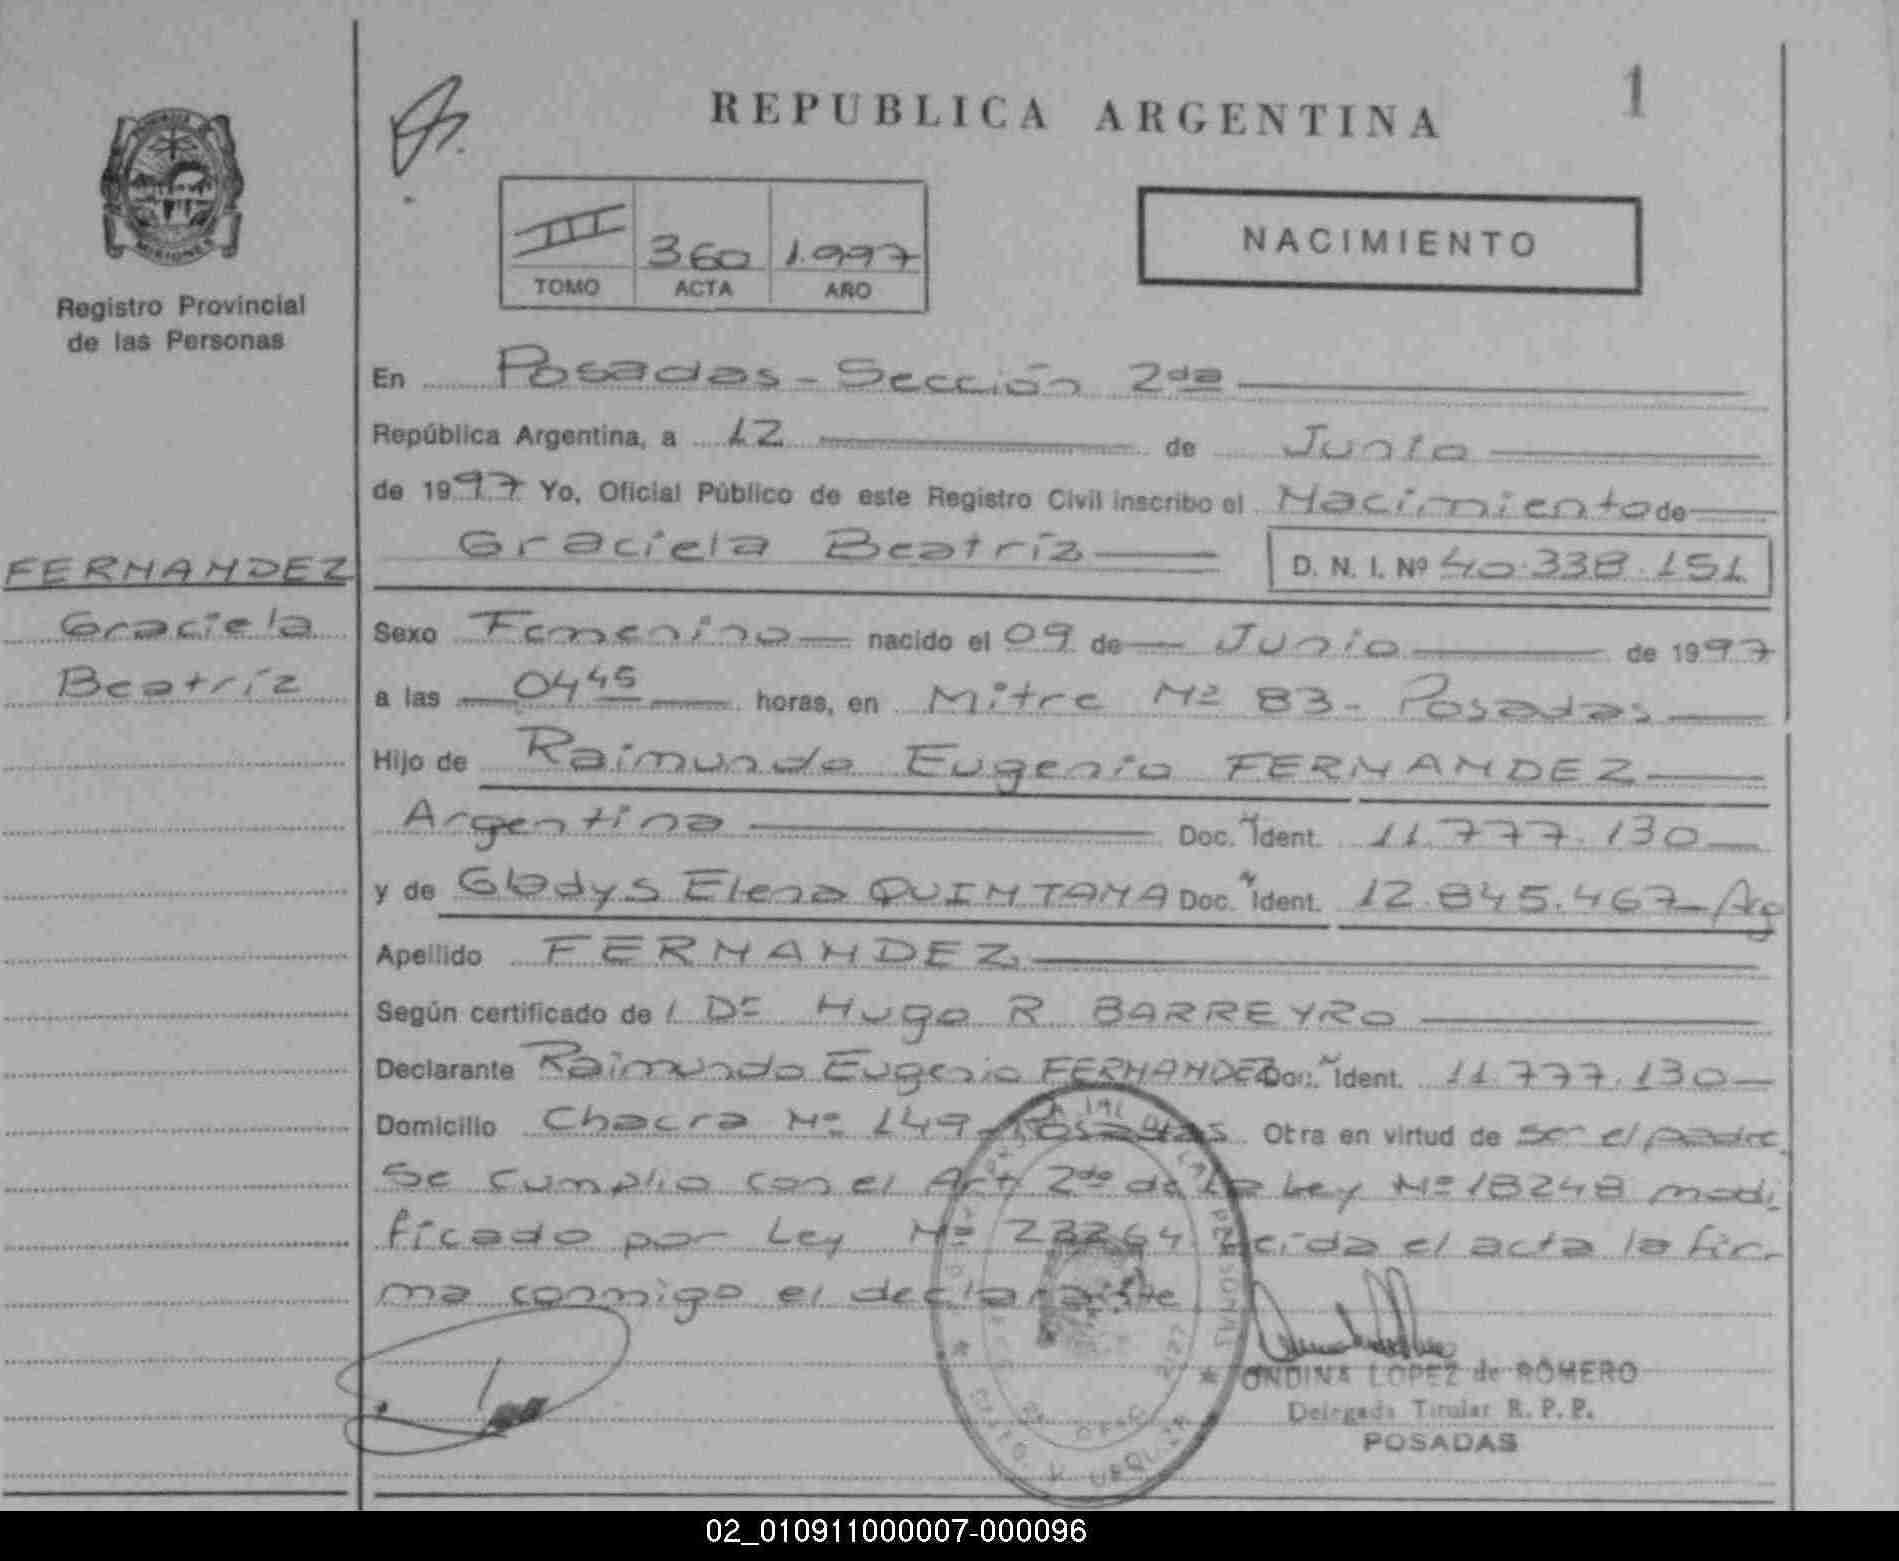 REPUBLICA ARGENTINA
1
III 360 1.997
TOMO ACTA AÑO
NACIMIENTO
MISIONES
Registro Provincial
de las Personas
En Posadas - Sección 2da
República Argentina, a 12 de Junio
de 1997 Yo, Oficial Público de este Registro Civil inscribo el Nacimiento de
Graciela Beatríz D. N. I. Nº 40.338.151
FERNANDEZ
Graciela
Beatríz
Sexo Femenino nacido el 09 de Junio de 1997
a las 04 45 horas, en Mitre Nº 83 - Posadas
Hijo de Raimundo Eugenio FERNANDEZ
Argentina Doc. Ident. 11.777.130
y de Gladys Elena QUINTANA Doc. Ident. 12.845.467 - Arg
Apellido FERNANDEZ
Según certificado de l Dr Hugo R BARREYRO
Declarante Raimundo Eugenio FERNANDEZ Doc. Ident. 11.777.130
Domicilio Chacra Nº 149 - Posadas Obra en virtud de ser el padre
Se cumplio con el Art 2do de la Ley Nº 18248 modi
ficado por Ley Nº 23264 Leída el acta la fir-
ma conmigo el declarante
ONDINA LOPEZ de ROMERO
Delegada Titular R. P. P.
POSADAS
02_010911000007-000096